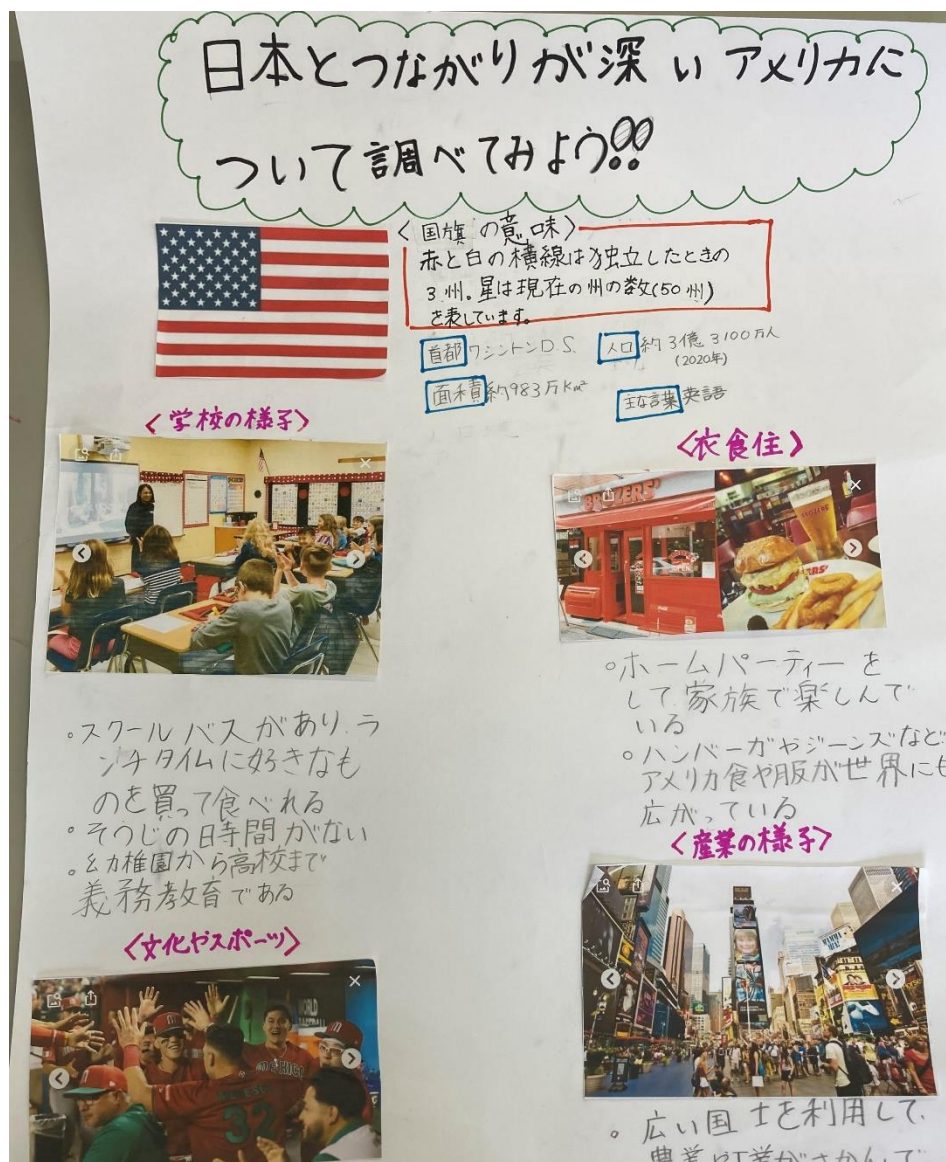 日本とつながりが深いアメリカに
ついて調べてみよう!!
<国旗の意味>
赤と白の横線は独立したときの
3州。星は現在の州の数(50州)
を表しています。
首都 ワシントンD.S.
人口 約3億3100万人
(2020年)
面積 約983万Km²
主な言葉 英語
<学校の様子>
。スクールバスがあり、ラ
ンチタイムに好きなも
のを買って食べれる
。そうじの時間がない
。幼稚園から高校まで
義務教育である
<衣食住>
。ホームパーティーを
して家族で楽しんで
いる
。ハンバーガやジーンズなど
アメリカ食や服が世界にも
広がっている
<文化やスポーツ>
WORLD
BASEBALL
32
<産業の様子>
。広い国土を利用して、
農業や工業がさかんで